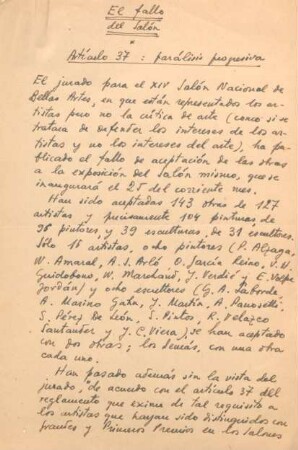 El fallo
del Salón
*
Artículo 37 : parálisis progresiva
El jurado para el XIV Salón Nacional de
Bellas Artes, en que están representados los ar-
tistas pero no la crítica de arte (como si se
tratara de defender los intereses de los ar-
tistas y no los intereses del arte), ha pu-
blicado el fallo de aceptación de las obras
a la exposición del salón mismo, que se
inaugurará el 25 del corriente mes.
Han sido aceptadas 143 obras de 127
artistas y precisamente 104 pinturas de
96 pintores, y 39 esculturas, de 31 escultores.
Sólo 16 artistas, ocho pintores (P. Alzaga,
W. Amaral, A. S. Arló, O. García Reino, V. H.
Guidobono, W. Marchand, J. Verdié y E. Volpe
Jordán) y ocho escultores (G. A. Laborde
A. Marino Gahn, J. Martín, A. Panosetti
S. Pérez de León, S. Pintos, R. Velazco
Santander y J. C. Viera), se han aceptado
con dos obras; los demás, con una obra
cada uno.
Han pasado además sin la vista del
jurado, de acuerdo con el artículo 37 del
reglamento que exime de tal requisito a
los artistas que hayan sido distinguidos con
Grandes y Primeros Premios en los Salones